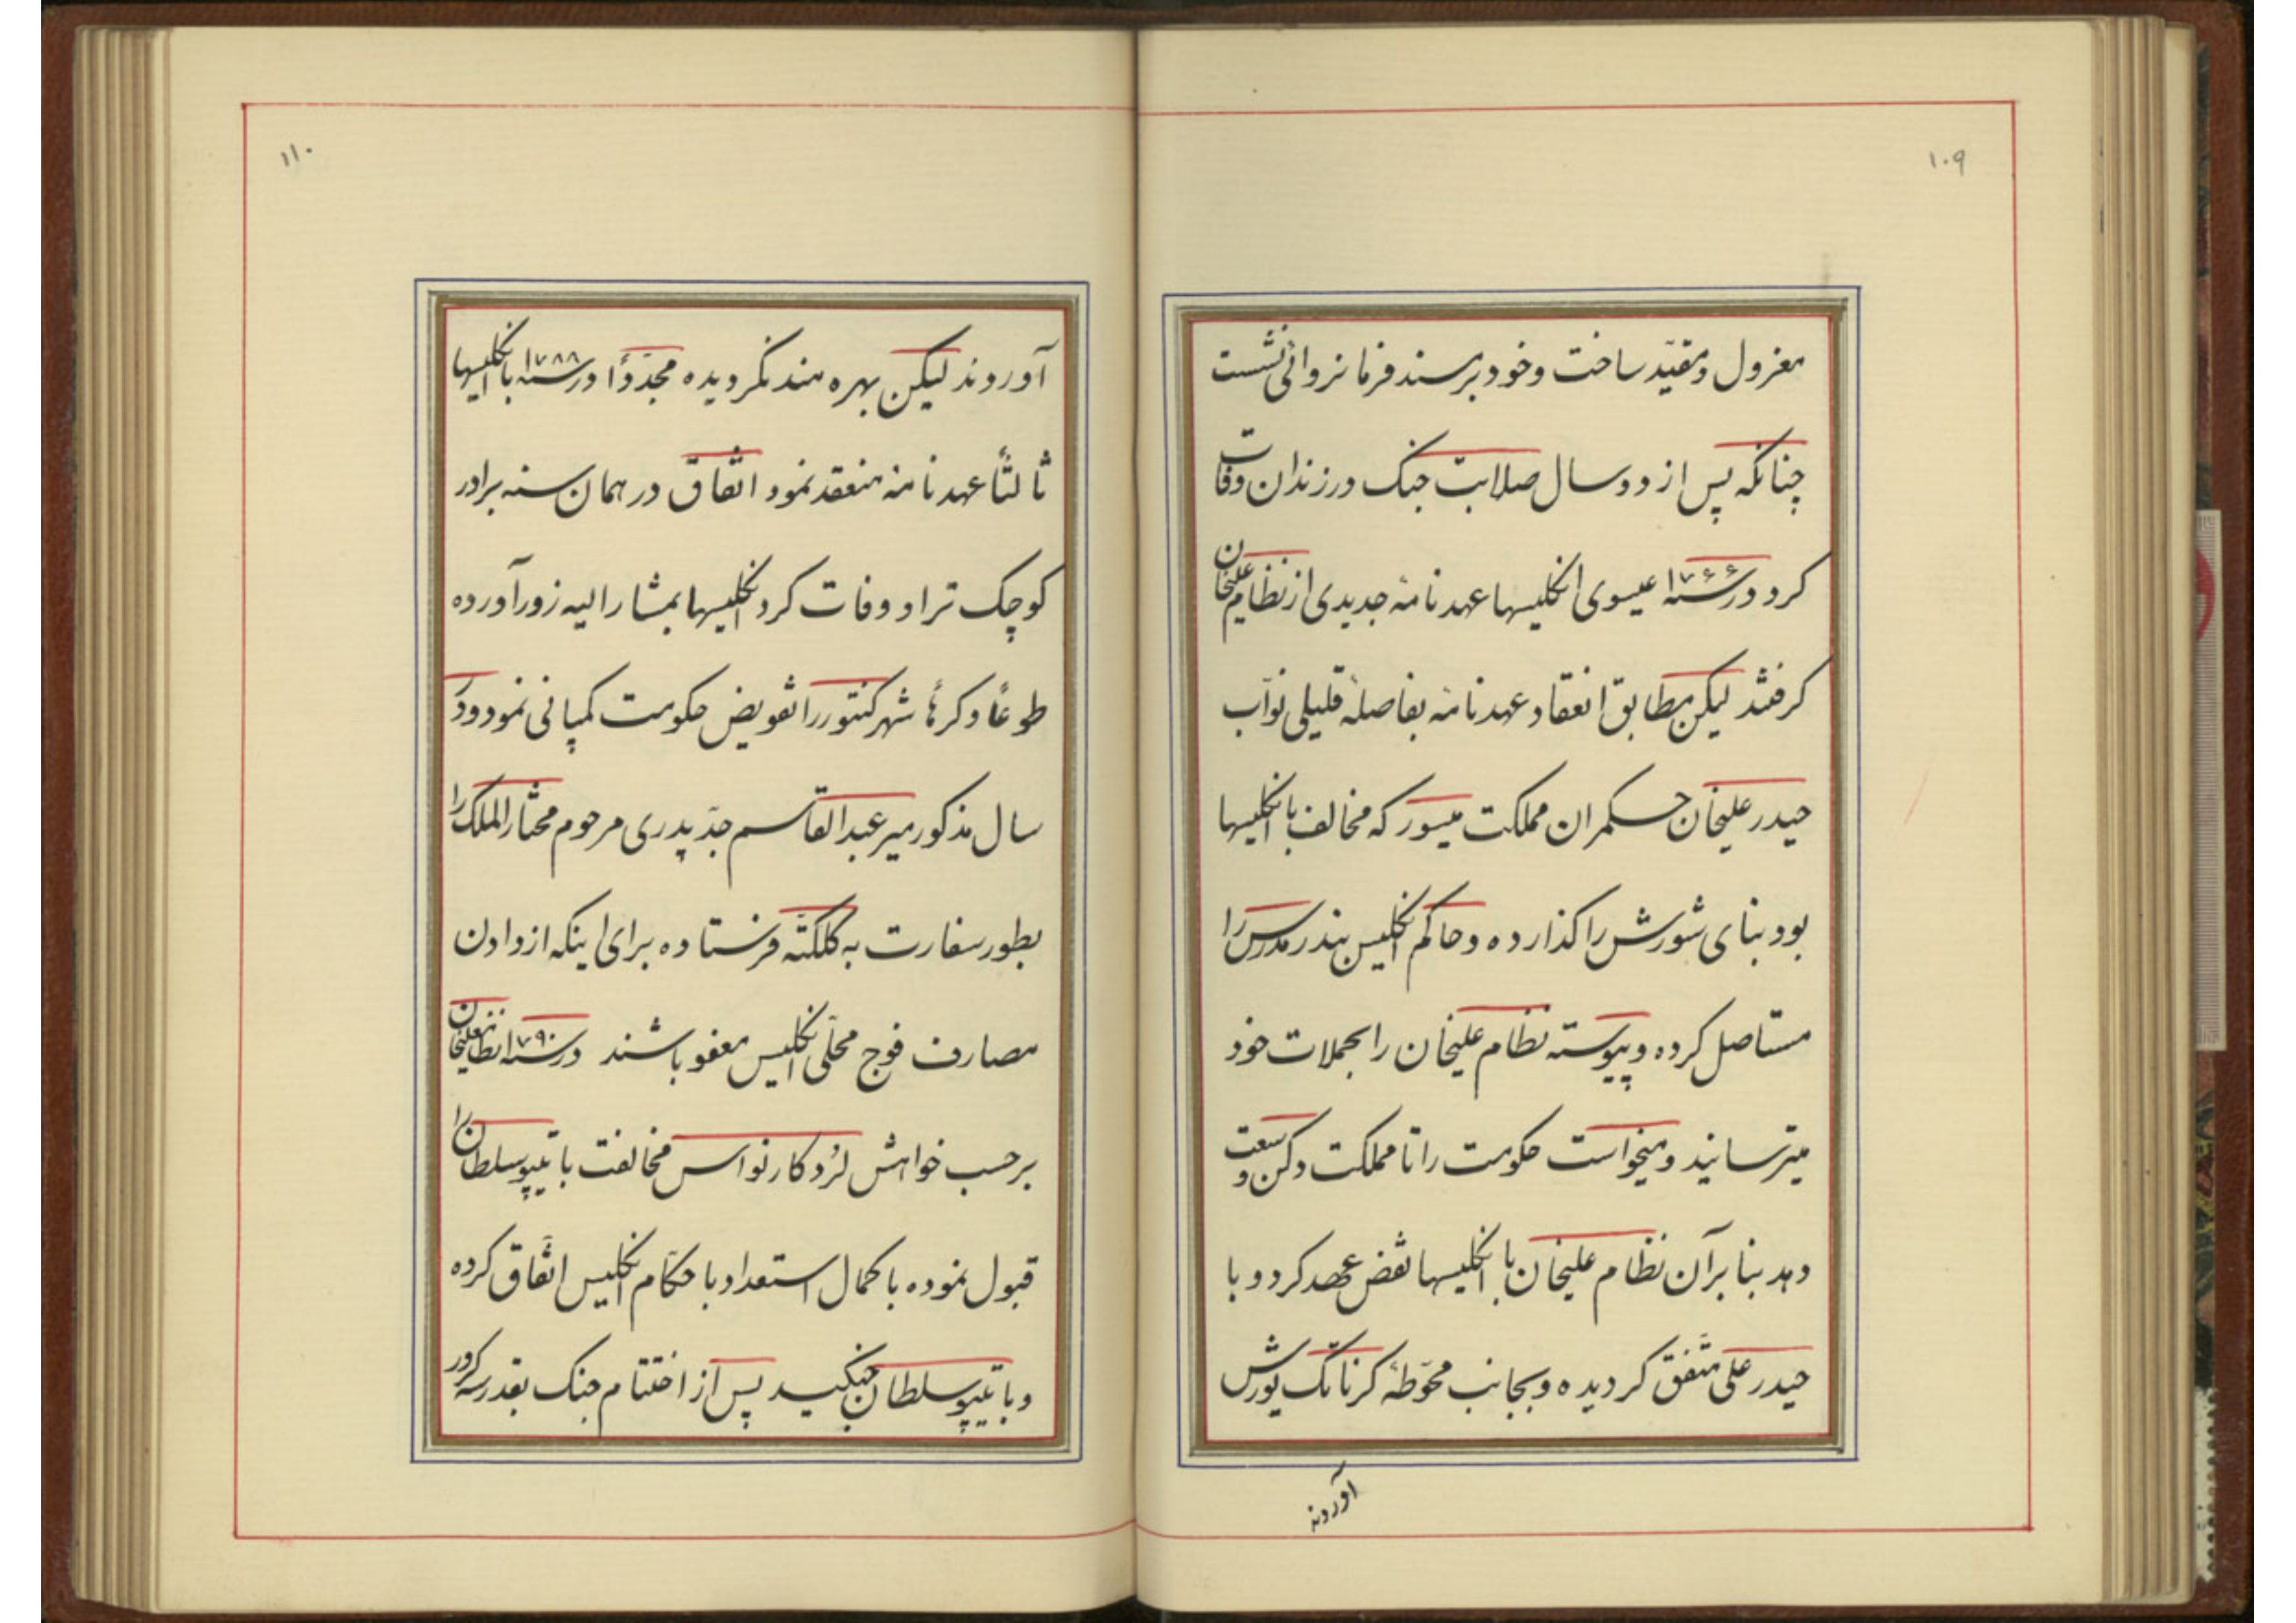 ۱۰۹
معزول و مقیّد ساخت و خود بر مسند فرمانروائی نشست
چنانکه پس از دو سال صلابت جنک در زندان وفات
کرد در سنه ۱۷۶۶ عیسوی انکلیسها عهدنامهٔ جدیدی از نظام علیخان
کرفتند لیکن مطابق انعقاد عهدنامه بفاصلهٔ قلیلی نوّاب
حیدر علیخان حکمران مملکت میسور که مخالف با انکلیسها
بود بنای شورش را کذارده و حاکم انکلیس بندر مدرس را
مستاصل کرده و پیوسته نظام علیخان را بحملات خود
میترسانید و میخواست حکومت را تا مملکت دکن وسعت
دهد بنا برآن نظام علیخان با انکلیسها نقض عهد کرد و با
حیدر علی متّفق کردیده و بجانب محوّطهٔ کرناتک یورش
آوردند
۱۱۰
آوردند لیکن بهره مند نکردیده مجدّداً در سنه ۱۷۸۸ با انکلیسها
ثالثاً عهدنامه منعقد نمود اتّفاق در همان سنه برادر
کوچک تر او وفات کرد انکلیسها بمشارالیه زور آورده
طوعاً و کرهاً شهر کنتور را تفویض حکومت کمپانی نمود و در
سال مذکور میر عبدالقاسم جدّ پدری مرحوم مختارالملک را
بطور سفارت به کلکتّه فرستاده برای اینکه از دادن
مصارف فوج محلّی انکلیس معفو باشند در سنه ۱۷۹۰ نظام علیخان
برحسب خواهش لرُد کارنواس مخالفت با تیپو سلطان را
قبول نموده با کمال استعداد با حکّام انکلیس اتّفاق کرده
و با تیپو سلطان جنکید پس از اختتام جنک بقدر سه کرور